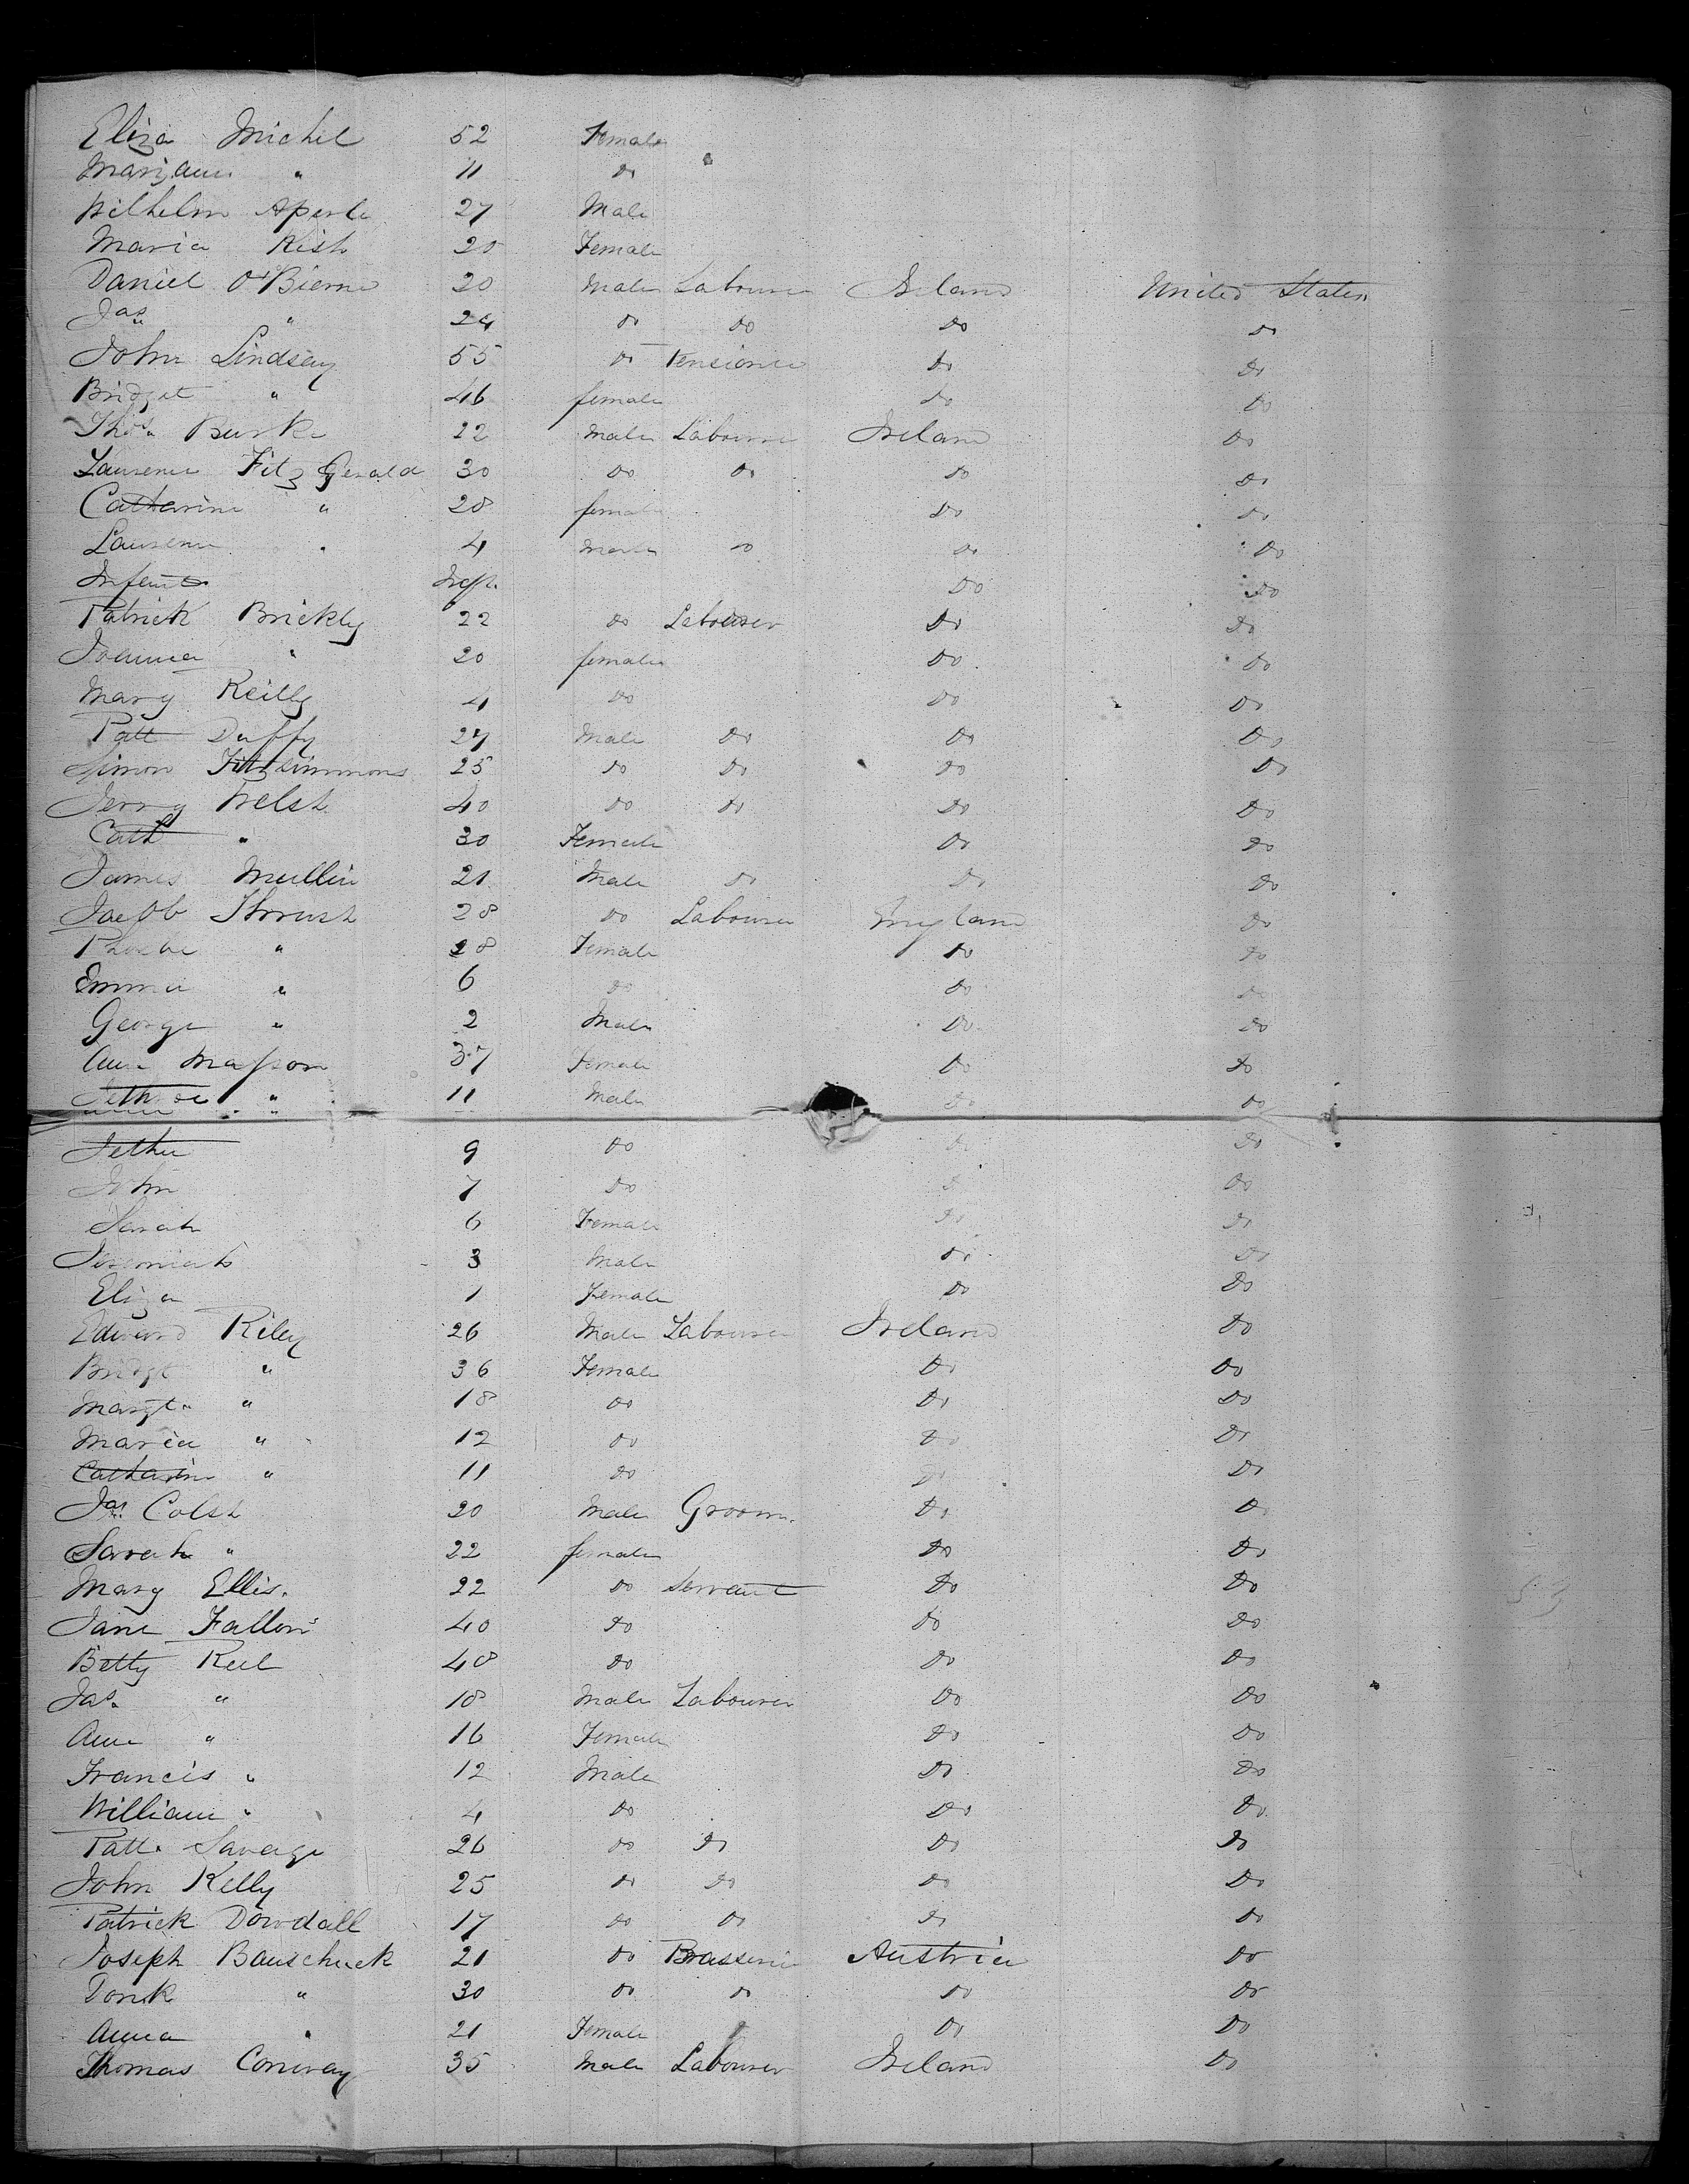 Eliza Michel 52 Female
Maryann " 11 do
Wilhelm Aperle 27 Male
Maria Rish 20 Female
Daniel O'Bierne 20 Male Labourer Ireland United States
Jas " 24 do do do do
John Lindsay 55 do Pensioner do do
Bridget " 46 female do do
Thos Burke 22 Male Labourer Ireland do
Laurence Fitz Gerald 30 do do do do
Catharine " 28 female do do
Laurence " 4 Male do do do
Infant Inft. do do
Patrick Brickly 22 do Labourer do do
Joanna " 20 female do do
Mary Reilly 4 do do do
Patt Duffy 27 Male do do do
Simon Fitzsimmons 25 do do do do
Jerry Welsh 40 do do do do
Cath " 30 Female do do
James Mullin 21 Male do do do
Jacob Thrush 28 do Labourer England do
Phoebe " 28 Female do do
Emma " 6 do do do
George " 2 Male do do
Ann Masson 37 Female do do
" 11 Male do do
Jether 9 do do do
John 7 do do do
Sarah 6 Female do do
Jeremiah 3 Male do do
Eliza 1 Female do do
Edward Riley 26 Male Labourer Ireland do
Bridgt " 36 Female do do
Margt. " 18 do do do
Maria " 12 do do do
Catharine " 11 do do do
Jas Colsh 20 Male Groom. do do
Sarah " 22 female do do
Mary Ellis. 22 do Servant do do
Jane Fallon 40 do do do
Betty Reel 48 do do do
Jas. " 18 Male Labourer do do
Ann " 16 Female do do
Francis " 12 Male do do
William " 4 do do do
Patt. Savage 26 do do do do
John Kelly 25 do do do do
Patrick Dowdall 17 do do do do
Joseph Bauschuek 21 do Austria do
" 30 do do do do
Anna " 21 Female do do
Thomas Conway 35 Male Labourer Ireland do